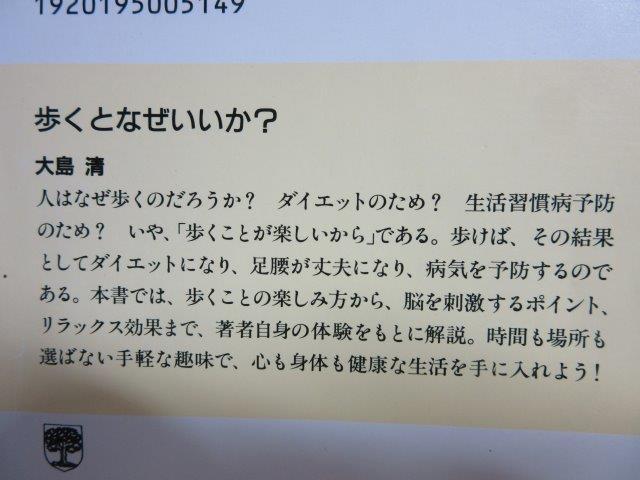 1920195005149
歩くとなぜいいか?
大島 清
人はなぜ歩くのだろうか? ダイエットのため? 生活習慣病予防
のため? いや、「歩くことが楽しいから」である。歩けば、その結果
としてダイエットになり、足腰が丈夫になり、病気を予防するので
ある。本書では、歩くことの楽しみ方から、脳を刺激するポイント、
リラックス効果まで、著者自身の体験をもとに解説。時間も場所も
選ばない手軽な趣味で、心も身体も健康な生活を手に入れよう!